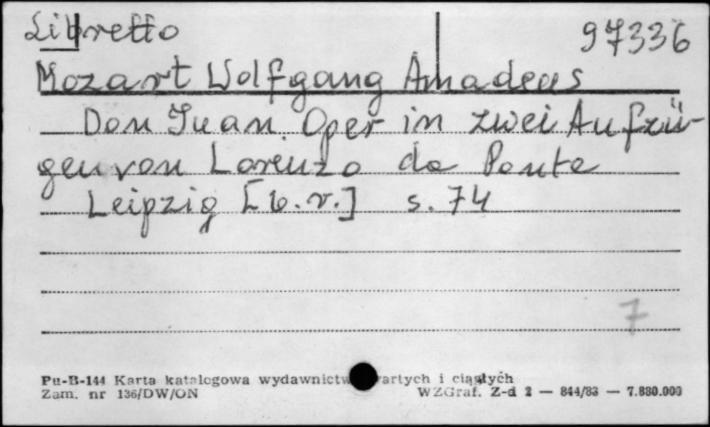 Libretto 97336
Mozart Wolfgang Amadeus
Don Juan. Oper in zwei Aufzü-
gen von Lorenzo da Ponte
Leipzig [b.r.] s. 74
7
Pu-B-144 Karta katalogowa wydawnictw zwartych i ciągłych
Zam. nr 136/DW/ON WZGraf. Z-d 2 — 844/83 — 7.880.000